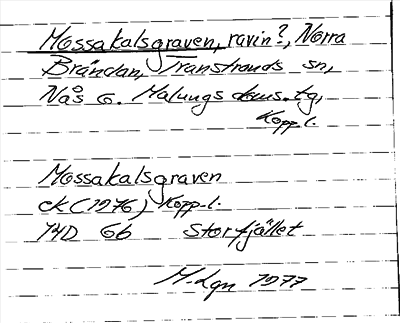 Mossakalsgraven, ravin?, Norra
Brändan, Transtrands sn,
Nås o. Malungs doms.tg,
Kopp.l.
Mossakalsgraven
ek (1976) Kopp.l.
14D 6b Storfjället
M.Lgn 1977